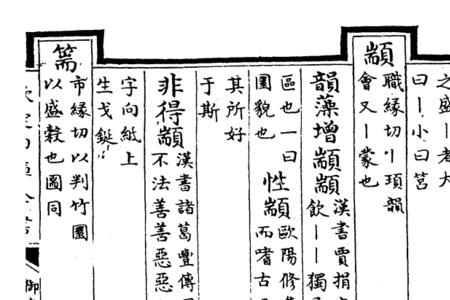 之盛ー老大
曰ー小曰筥
顓
職緣切刂頊韻
會又ー蒙也
韻藻增顓顓
漢書賈捐
飮ーー獨
區也一曰
圜貌也
性顓
歐陽修
而嗜古
其所好
于斯
非得顓
漢書諸葛豐傳
不法善善惡惡
字向紙上
生戈鋋
篅
市緣切以判竹圜
以盛榖也圖同
御